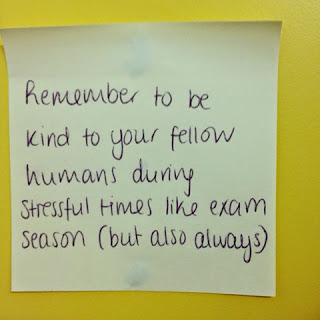 Remember to be
kind to your fellow
humans during
stressful times like exam
season (but also always)